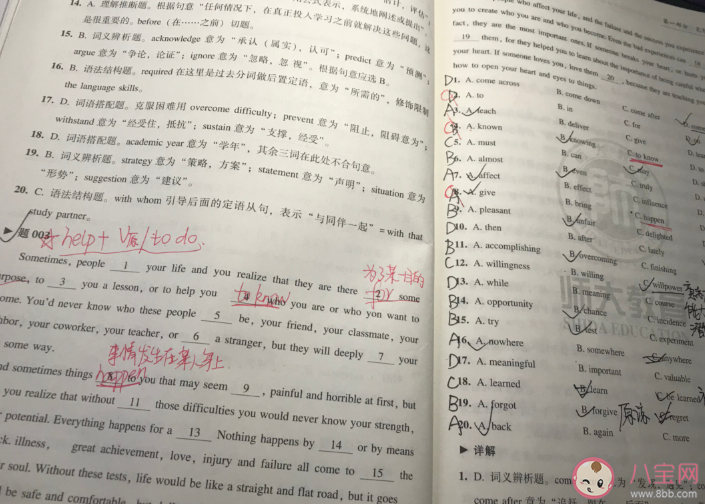 14. A. 理解推断题。根据句意“任何情况下，在真正投入学习之前就解决这些问题，
是很重要的。before（在……之前）切题。
15. B. 词义辨析题。acknowledge 意为“承认（属实），认可”；predict 意为“预测”；
argue 意为“争论，论证”；ignore 意为“忽略，忽视”。根据句意应选 B。
16. B. 语法结构题。required 在这里是过去分词做后置定语，意为“所需的”，修饰限制
the language skills。
17. D. 词语搭配题。克服困难用 overcome difficulty；prevent 意为“阻止，阻碍意为”；
withstand 意为“经受住，抵抗”；sustain 意为“支撑，经受”。
18. D. 词语搭配题。academic year 意为“学年”，其余三词在此处不合句意。
19. B. 词义辨析题。strategy 意为“策略，方案”；statement 意为“声明”；situation 意为
“形势”；suggestion 意为“建议”。
20. C. 语法结构题。with whom 引导后面的定语从句，表示“与同伴一起”=with that
study partner。
▶ 题 003 help + V原/to do.
Sometimes, people 1 your life and you realize that they are there 2 some
为了某一目的
for
purpose, to 3 you a lesson, or to help you 4 who you are or who you want to
to know
ome. You'd never know who these people 5 be, your friend, your classmate, your
bor, your coworker, your teacher, or 6 a stranger, but they will deeply 7 your
some way.
事情发生在某人身上
happen
nd sometimes things 8 to you that may seem 9 , painful and horrible at first, but
you realize that without 11 those difficulties you would never know your strength,
potential. Everything happens for a 13 Nothing happens by 14 or by means
ck. illness, great achievement, love, injury and failure all come to 15 the
r soul. Without these tests, life would be like a straight and flat road, but it goes
l be safe and comfortable, but
people who affect your life, and the
you to create who you are and who you become. Even the bad experiences can 18
fact, they are the most important ones. If someone breaks your heart,
19 them, for they helped you to learn about the importance of being careful
your heart. If someone loves you, love them 20 , because they are teaching you
how to open your heart and eyes to things.
D1. A. come across B. come down C. come after
2. A. to B. in C. for
A3. A. teach B. deliver C. give
4. A. known B. knowing C. to know
C5. A. must B. can
B6. A. almost B. even C. truly
A7. A. affect B. effect C. influence
8. A. give B. bring C. happen
B9. A. pleasant B. unfair C. delighted
D10. A. then B. after C. lately
B11. A. accomplishing B. overcoming C. finishing
C12. A. willingness B. willing
D13. A. while B. meaning C. course
B14. A. opportunity B. chance C. incidence
B15. A. try C. experiment
A16. A. nowhere B. somewhere C. anywhere
D17. A. meaningful B. important C. valuable
C18. A. learned B. learn C. be learned
B19. A. forgot B. forgive 原谅 C. regret
A20. A. back B. again C. more
▶ 详解
1. D. 词义辨析题。
八宝网
www.8bb.com